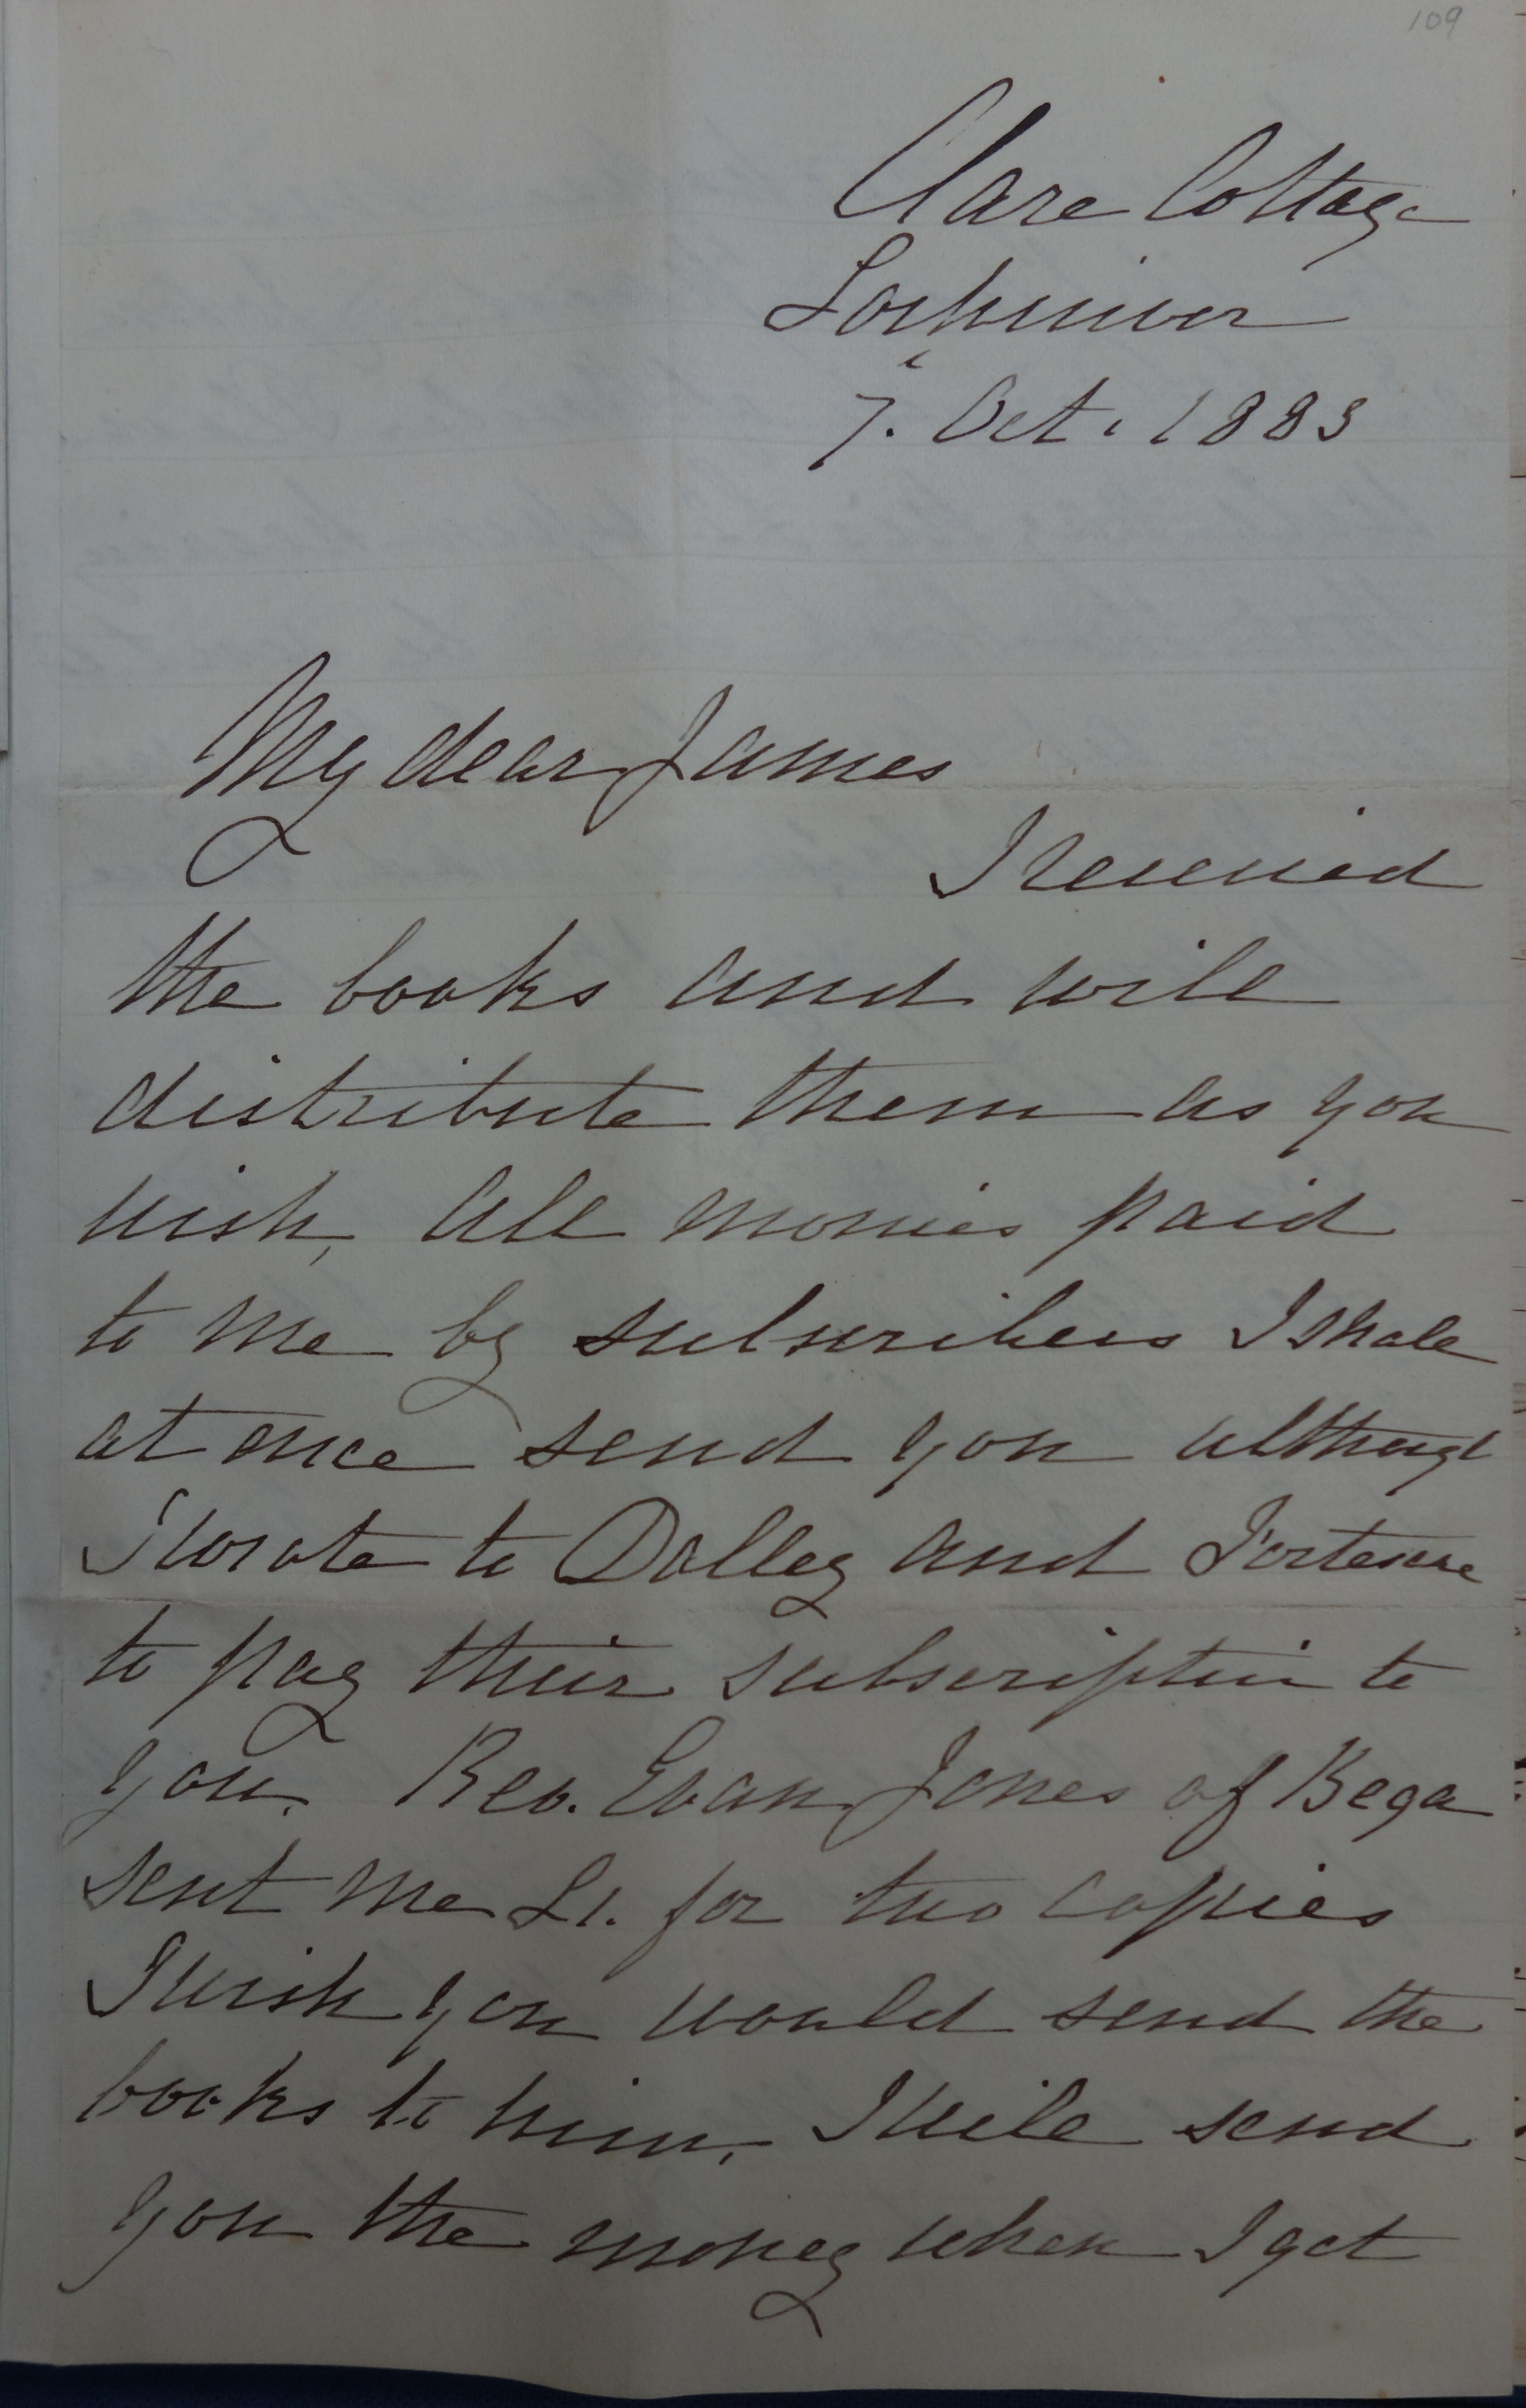 109
Clare Cottage
Lochinver
7. Oct. 1883
My dear James
I received
the books and will
distribute them as you
wish, All monies paid
to me by subscribers I shall
at once send you although
I wrote to Dalley and Fortescue
to pay their subscription to
you. Rev. Evan Jones of Bega
sent me £1. for two copies
I wish you would send the
books to him, I will send
you the money when I get